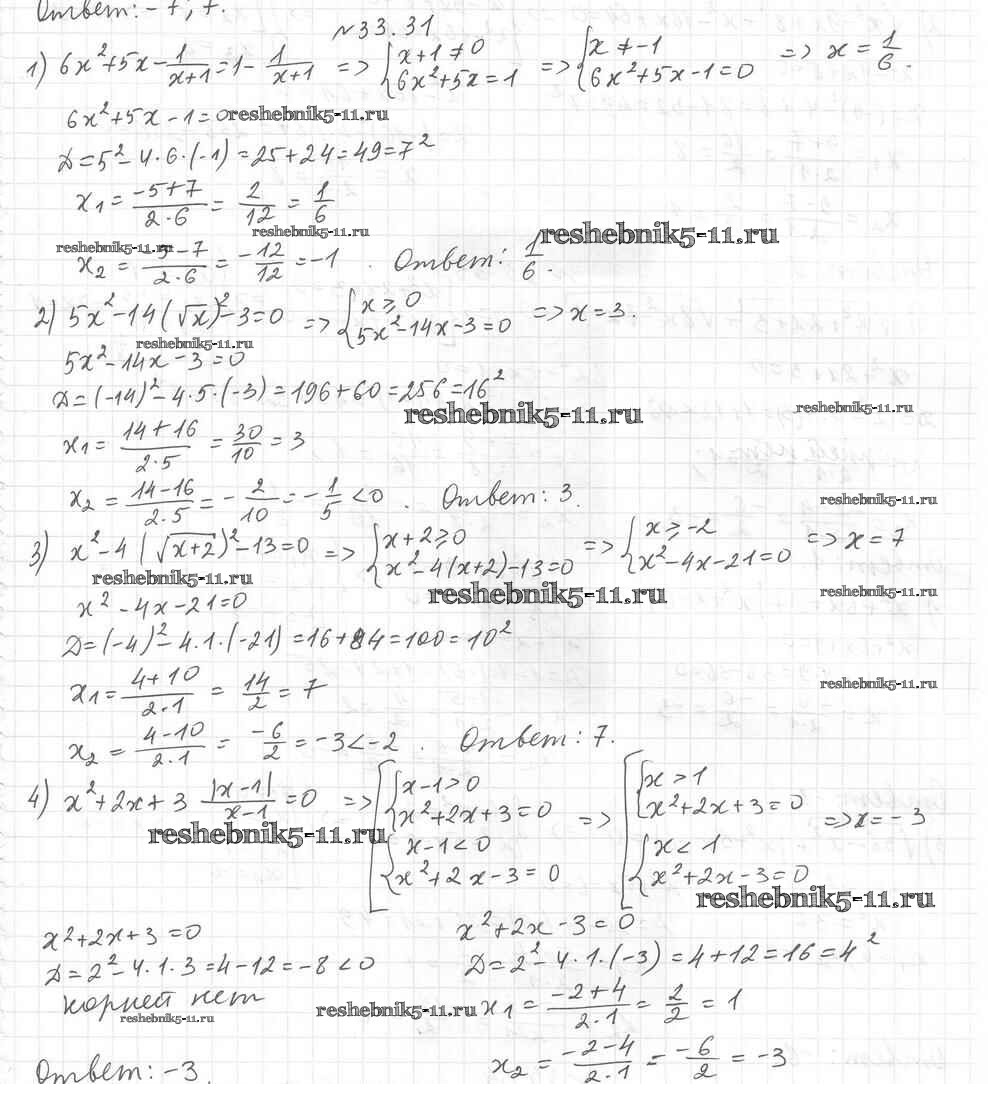 Ответ: -7; 7.
№33.31
1) 6x²+5x-1/(x+1)=1-1/(x+1) => {x+1≠0 {6x²+5x=1 => {x≠-1 {6x²+5x-1=0 => x=1/6.
6x²+5x-1=0 reshebnik5-11.ru
Д=5²-4·6·(-1)=25+24=49=7²
x₁=(-5+7)/(2·6)=2/12=1/6
reshebnik5-11.ru
reshebnik5-11.ru
reshebnik5-11.ru
x₂=(-5-7)/(2·6)=-12/12=-1. Ответ: 1/6.
2) 5x²-14(√x)²-3=0 => {x≥0 {5x²-14x-3=0 => x=3.
reshebnik5-11.ru
5x²-14x-3=0
Д=(-14)²-4·5·(-3)=196+60=256=16²
reshebnik5-11.ru
reshebnik5-11.ru
x₁=(14+16)/(2·5)=30/10=3
x₂=(14-16)/(2·5)=-2/10=-1/5<0. Ответ: 3.
reshebnik5-11.ru
3) x²-4(√(x+2))²-13=0 => {x+2≥0 {x²-4(x+2)-13=0 => {x≥-2 {x²-4x-21=0 => x=7
reshebnik5-11.ru
reshebnik5-11.ru
reshebnik5-11.ru
x²-4x-21=0
Д=(-4)²-4·1·(-21)=16+84=100=10²
x₁=(4+10)/(2·1)=14/2=7
reshebnik5-11.ru
x₂=(4-10)/(2·1)=-6/2=-3<-2. Ответ: 7.
4) x²+2x+3 |x-1|/(x-1)=0 => [{x-1>0 {x²+2x+3=0 {x-1<0 {x²+2x-3=0 => [{x>1 {x²+2x+3=0 {x<1 {x²+2x-3=0 => x=-3
reshebnik5-11.ru
reshebnik5-11.ru
x²+2x+3=0
Д=2²-4·1·3=4-12=-8<0
корней нет
reshebnik5-11.ru
x²+2x-3=0
Д=2²-4·1·(-3)=4+12=16=4²
reshebnik5-11.ru
x₁=(-2+4)/(2·1)=2/2=1
x₂=(-2-4)/(2·1)=-6/2=-3
Ответ: -3.